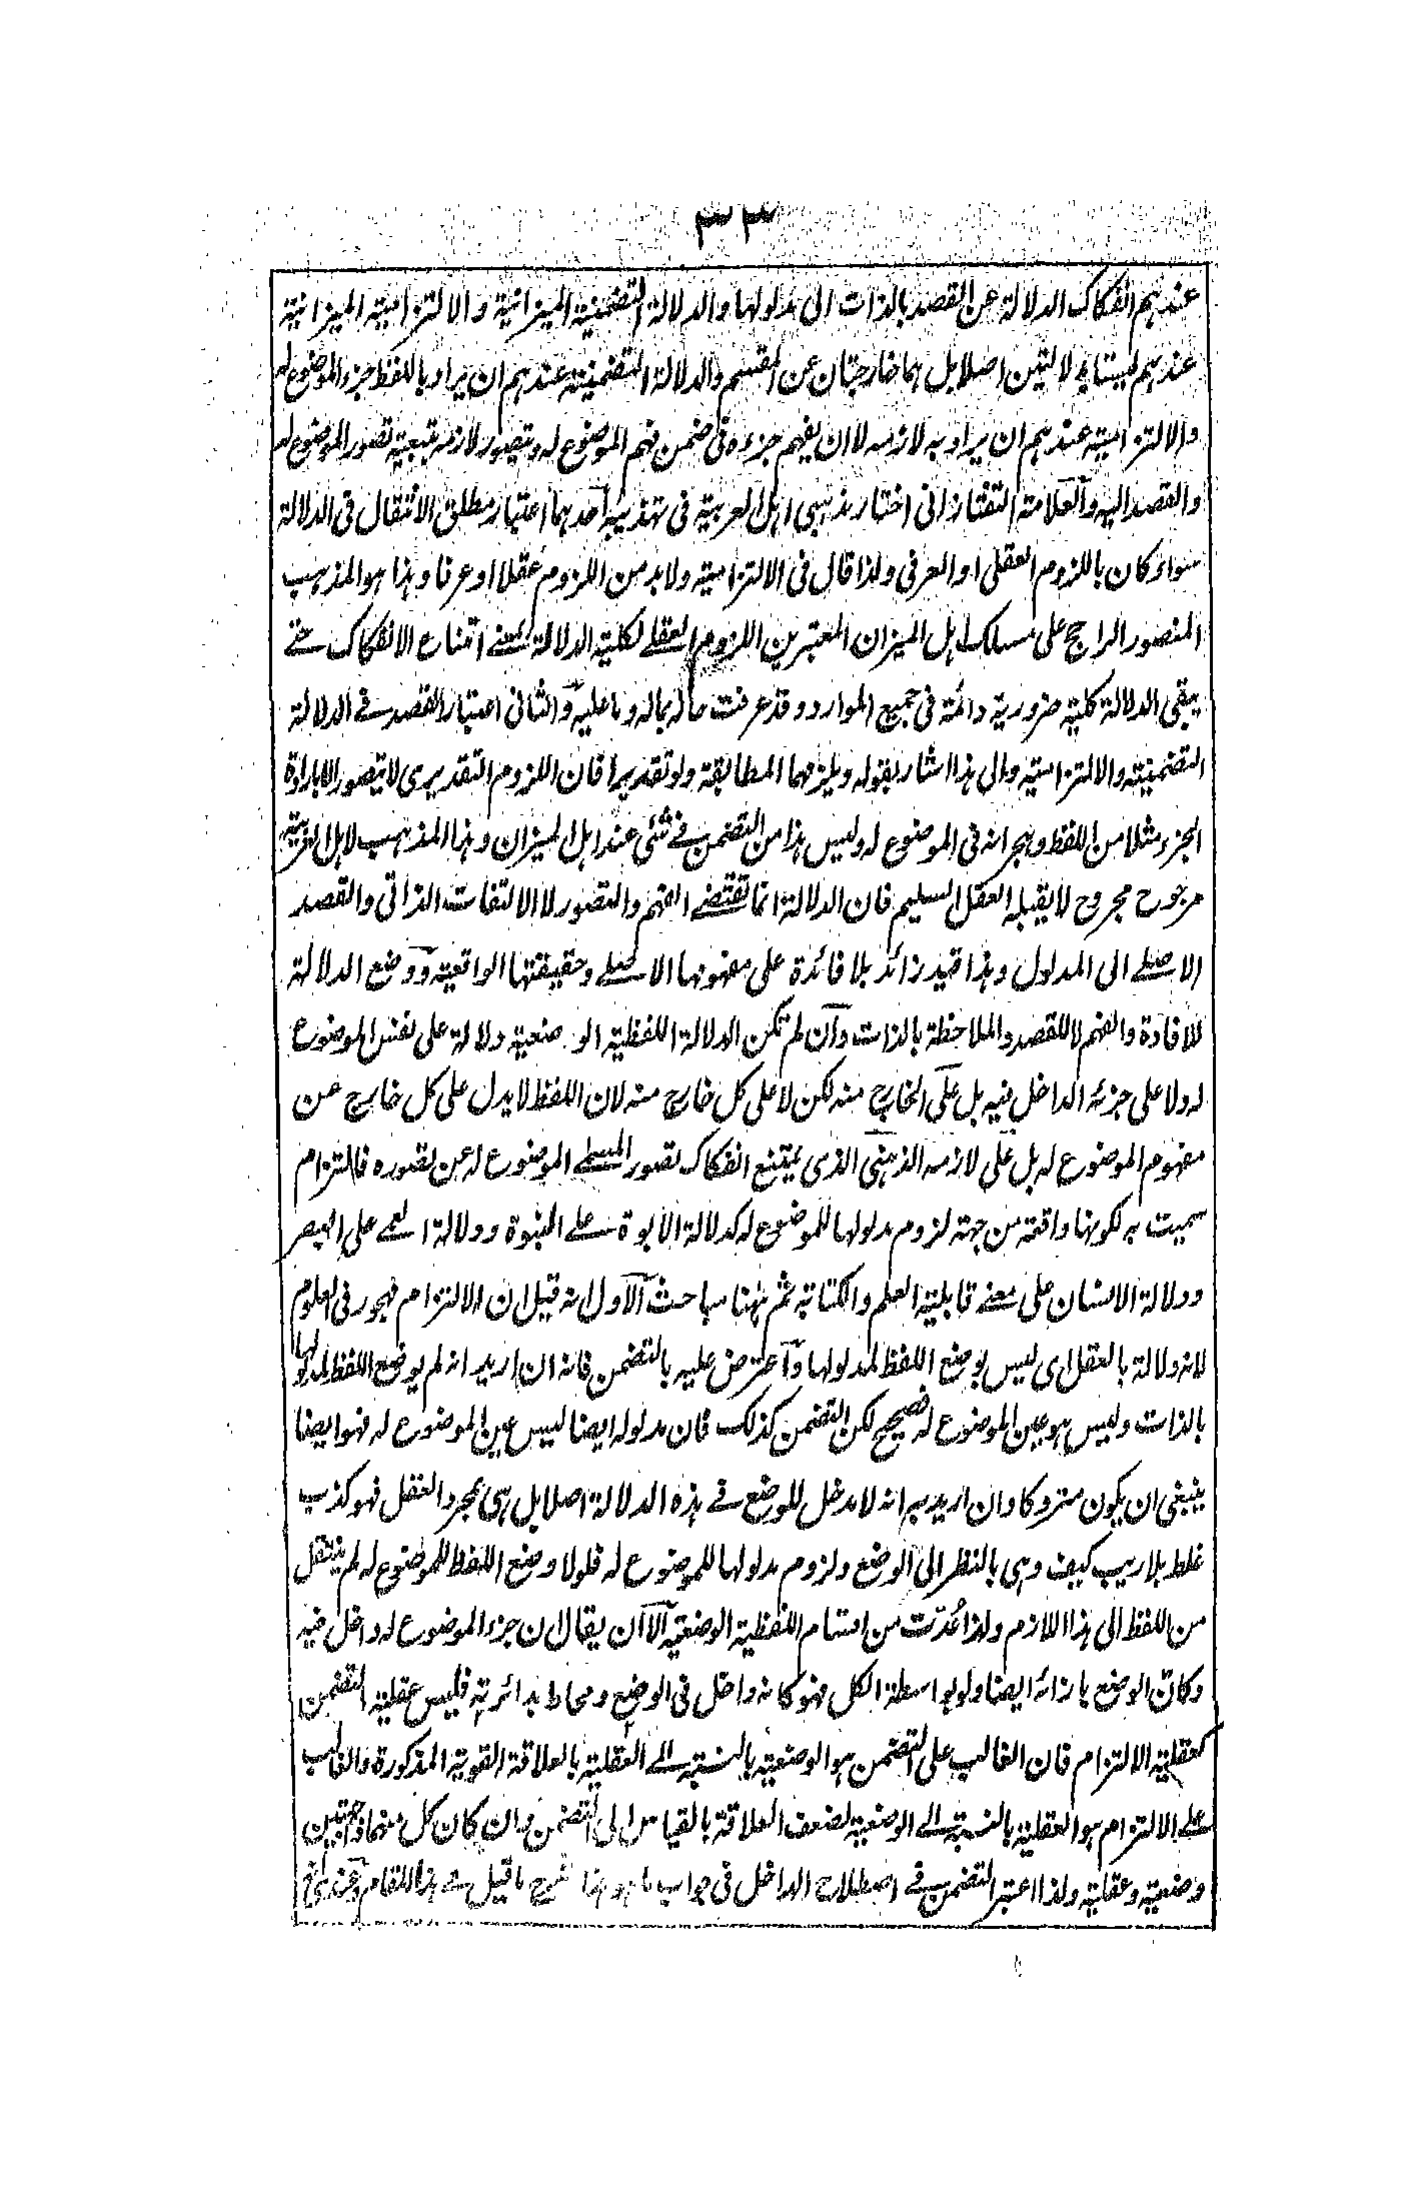 ٣٣
عندهم انفكاك الدلالة عن القصد بالذات الى مدلولها والدلالة التضمنية الميزانية والالتزامية الميزانية
عندهم ليستا بدلالتين اصلا بل هما خارجتان عن المقسم والدلالة التضمنية عندهم ان يراد باللفظ جزء الموضوع له
والالتزامية عندهم ان يراد به لازمه لا ان يفهم جزءه فى ضمن فهم الموضوع له ويتصور لازمه بتبعية تصور الموضوع له
والقصد اليه والعلامة التفتازانى اختار مذهبى اهل العربية فى تهذيبه احدهما اعتبار مطلق الانتقال فى الدلالة
سواء كان باللزوم العقلى او العرفى ولذا قال فى الالتزامية ولابد من اللزوم عقلا او عرفا وهذا هو المذهب
المنصور الراجح على مسلك اهل الميزان المعتبرين اللزوم العقلے لكلية الدلالة يعنے امتناع الانفكاك حتے
يبقى الدلالة كلية ضرورية دائمة فى جميع الموارد وقد عرفت ماله بماله وما عليه والثانى اعتبار القصد فے الدلالة
التضمنية والالتزامية والى هذا اشار بقوله ويلزمهما المطابقة ولو تقديرا فان اللزوم التقديرى لا يتصور الا باراوة
الجزء مثلا من اللفظ وهجرانه فى الموضوع له وليس هذا من التضمن فے شئى عند اهل الميزان وهذا المذهب لاهل العربية
مرجوح مجروح لا يقبله العقل السليم فان الدلالة انما تقتضے الفهم والتصور لا الالتفات الذاتى والقصد
الاصلے الى المدلول وهذا قيد زائد بلا فائدة على مفهومها الاصلے وحقيقتها الواقعية ووضع الدلالة
للافادة والفهم لا للقصد والملاحظة بالذات وان لم تكن الدلالة اللفظية الوضعية دلالة على نفس الموضوع
له ولا على جزئه الداخل فيه بل على الخارج منه لكن لا على كل خارج منه لان اللفظ لا يدل على كل خارج عن
مفهوم الموضوع له بل على لازمه الذهنى الذى يمتنع انفكاك تصور المسمے الموضوع له عن تصوره فالتزام
سميت به لكونها واقعة من جهة لزوم مدلولها للموضوع له كدلالة الابوة علے البنوة ودلالة العمے على البصر
ودلالة الانسان على معنے قابلية العلم والكتابة ثم ههنا مباحث الاول انه قيل ان الالتزام مهجور فى العلوم
لانه دلالة بالعقل اى ليس بوضع اللفظ لمدلولها واعترض عليه بالتضمن فانه ان اريد انه لم يوضع اللفظ لمدلولها
بالذات وليس هو عين الموضوع له فصحيح لكن التضمن كذلك فان مدلوله ايضا ليس عين الموضوع له فهو ايضا
ينبغى ان يكون متروكا وان اريد به انه لا مدخل للوضع فے هذه الدلالة اصلا بل هى بمجرد العقل فهو كذب
غلط بلا ريب كيف وهى بالنظر الى الوضع ولزوم مدلولها للموضوع له فلولا وضع اللفظ للموضوع له لم ينتقل
من اللفظ الى هذا اللازم ولهذا عُدّت من اقسام اللفظية الوضعية الا ان يقال ان جزء الموضوع له داخل فيه
وكان الوضع بازائه ايضا ولو بواسطة الكل فهو كانه داخل فى الوضع ومحاط بدائرته فليس عقلية التضمن
كعقلية الالتزام فان الغالب على التضمن هو الوضعية بالنسبة الے العقلية بالعلاقة القوية المذكورة والغالب
علے الالتزام هو العقلية بالنسبة الے الوضعية لضعف العلاقة بالقياس الى التضمن وان كان كل منهما ذا جهتين
وضعية وعقلية ولذا اعتبر التضمن فے اصطلاح الداخل فى جواب ما هو هذا ما قيل فے هذا المقام